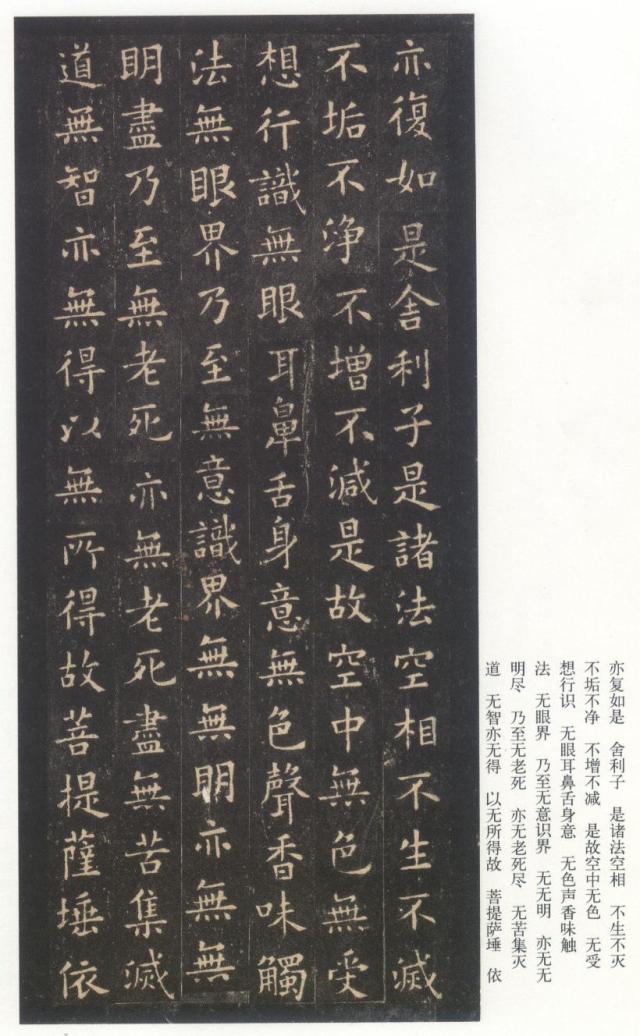 亦復如是舍利子是諸法空相不生不滅
不垢不淨不增不減是故空中無色無受
想行識無眼耳鼻舌身意無色聲香味觸
法無眼界乃至無意識界無無明亦無無
明盡乃至無老死亦無老死盡無苦集滅
道無智亦無得以無所得故菩提薩埵依
亦复如是 舍利子 是诸法空相 不生不灭
不垢不净 不增不减 是故空中无色 无受
想行识 无眼耳鼻舌身意 无色声香味触
法 无眼界 乃至无意识界 无无明 亦无无
明尽 乃至无老死 亦无老死尽 无苦集灭
道 无智亦无得 以无所得故 菩提萨埵 依